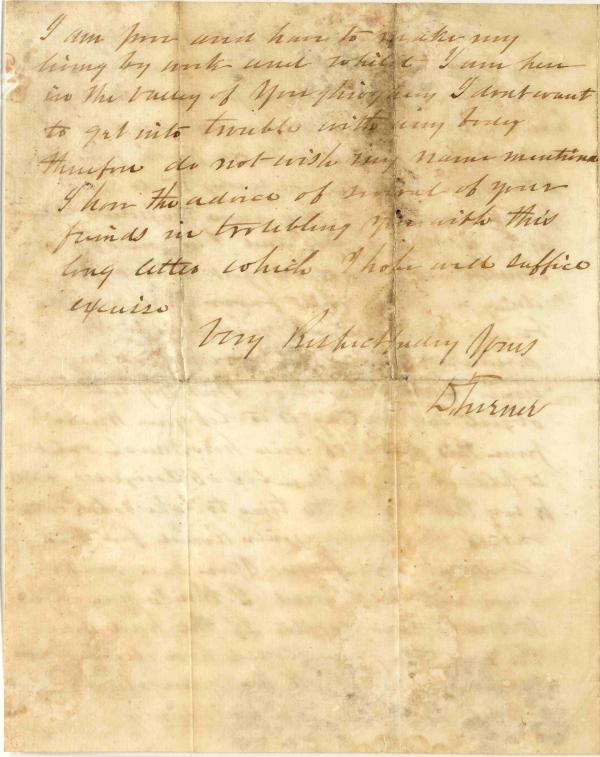 I am poor and have to make my
living by work and whilst I am here
in the valley of Youghiogheny I dont want
to get into trouble with any body
therefore do not wish my name mentiond
I have the advice of several of your
friends in troubling you with this
long letter which I hope will suffice
excuse
Very Respectfully Yours
D Turner